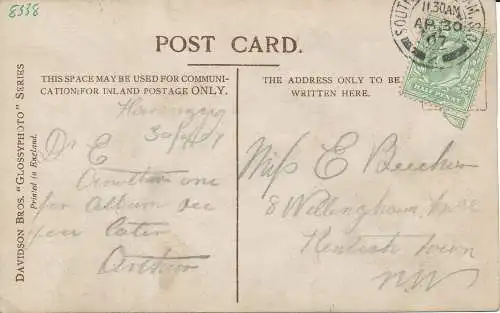 8338
POST CARD.
THIS SPACE MAY BE USED FOR COMMUNI-
CATION: FOR INLAND POSTAGE ONLY.
THE ADDRESS ONLY TO BE
WRITTEN HERE.
DAVIDSON BROS. "GLOSSYPHOTO" SERIES
Printed in England.
11.30AM
AP 30
07
30/4/07
Dr E
Another one
for Album see
you later
Arthur
Miss E Beecher
8 Willingham
Kentish Town
NW